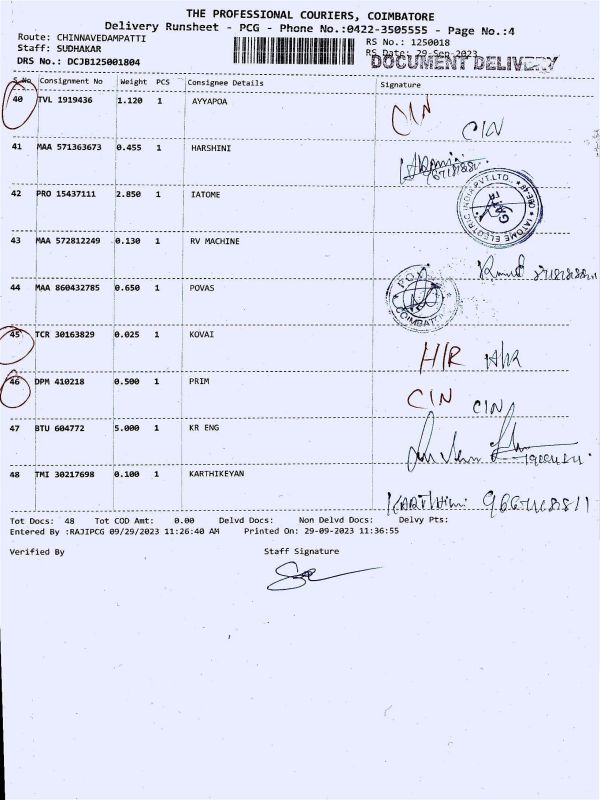 THE PROFESSIONAL COURIERS, COIMBATORE
Delivery Runsheet - PCG - Phone No.:0422-3505555 - Page No.:4
Route: CHINNAVEDAMPATTI
RS No.: 1250018
Staff: SUDHAKAR
RS Date: 29-Sep-2023
DOCUMENT DELIVERY
DRS No.: DCJB125001804
S.No Consignment No Weight PCS Consignee Details Signature
40 TVL 1919436 1.120 1 AYYAPOA CIN CIN
41 MAA 571363673 0.455 1 HARSHINI
42 PRO 15437111 2.850 1 IATOME
IATOME ELECTRIC INDIA PVT.LTD. GATE
43 MAA 572812249 0.130 1 RV MACHINE
44 MAA 860432785 0.650 1 POVAS
COIMBATORE
45 TCR 30163829 0.025 1 KOVAI H/R H/R
46 DPM 410218 0.500 1 PRIM CIN CIN
47 BTU 604772 5.000 1 KR ENG
48 TMI 30217698 0.100 1 KARTHIKEYAN
Tot Docs: 48 Tot COD Amt: 0.00 Delvd Docs: Non Delvd Docs: Delvy Pts:
Entered By :RAJIPCG 09/29/2023 11:26:40 AM Printed On: 29-09-2023 11:36:55
Verified By Staff Signature